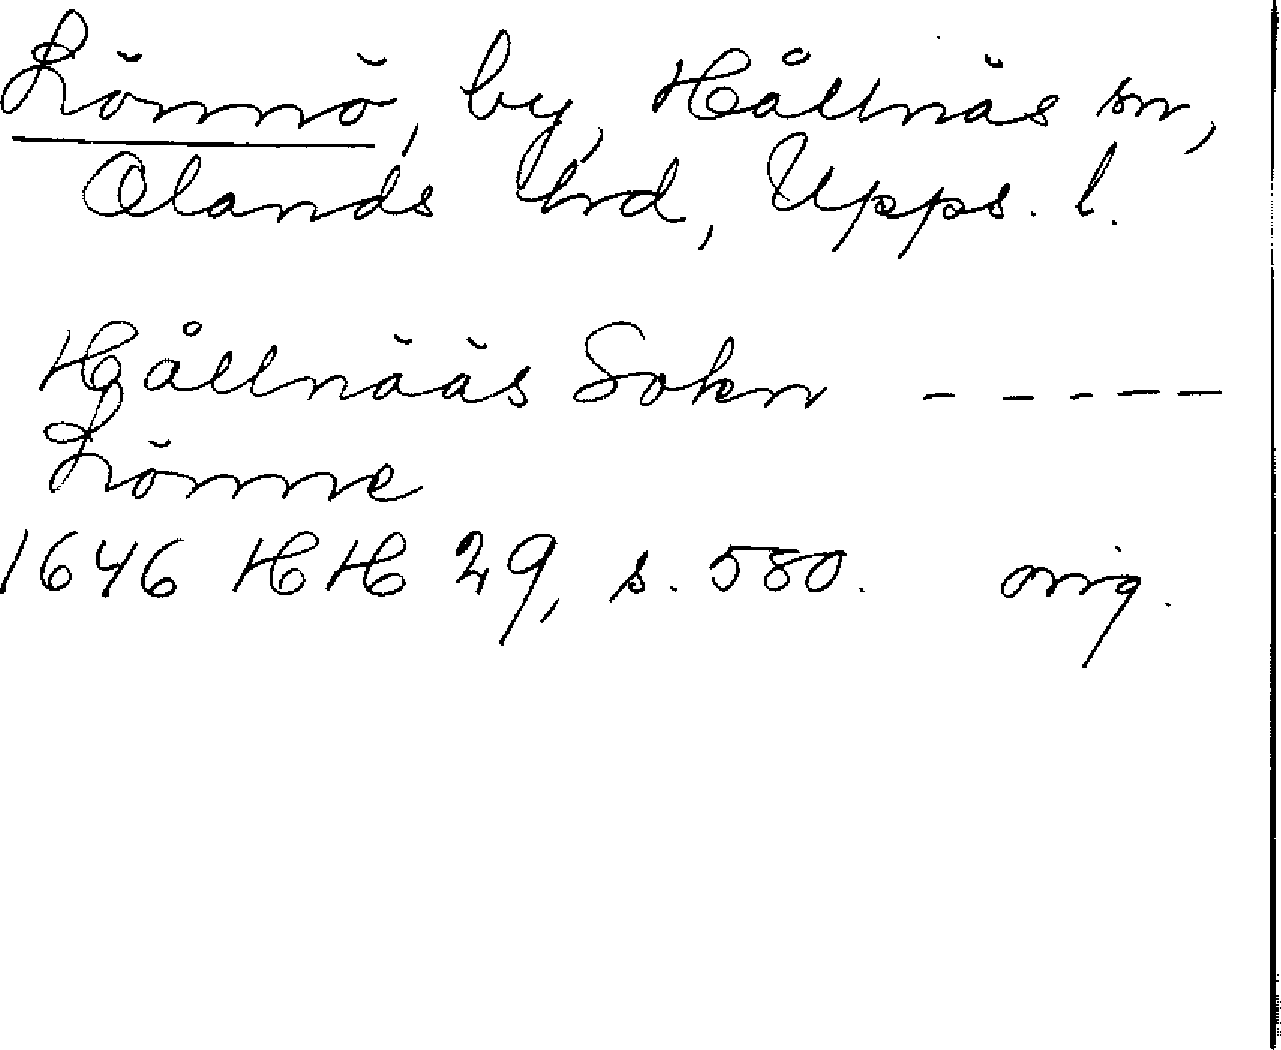 Lönnö, by, Hållnäs sn,
Olands hrd, Upps. l.
Hållnääs Sokn - - - - -
Lönne
1646 HH 29, s. 580. orig.